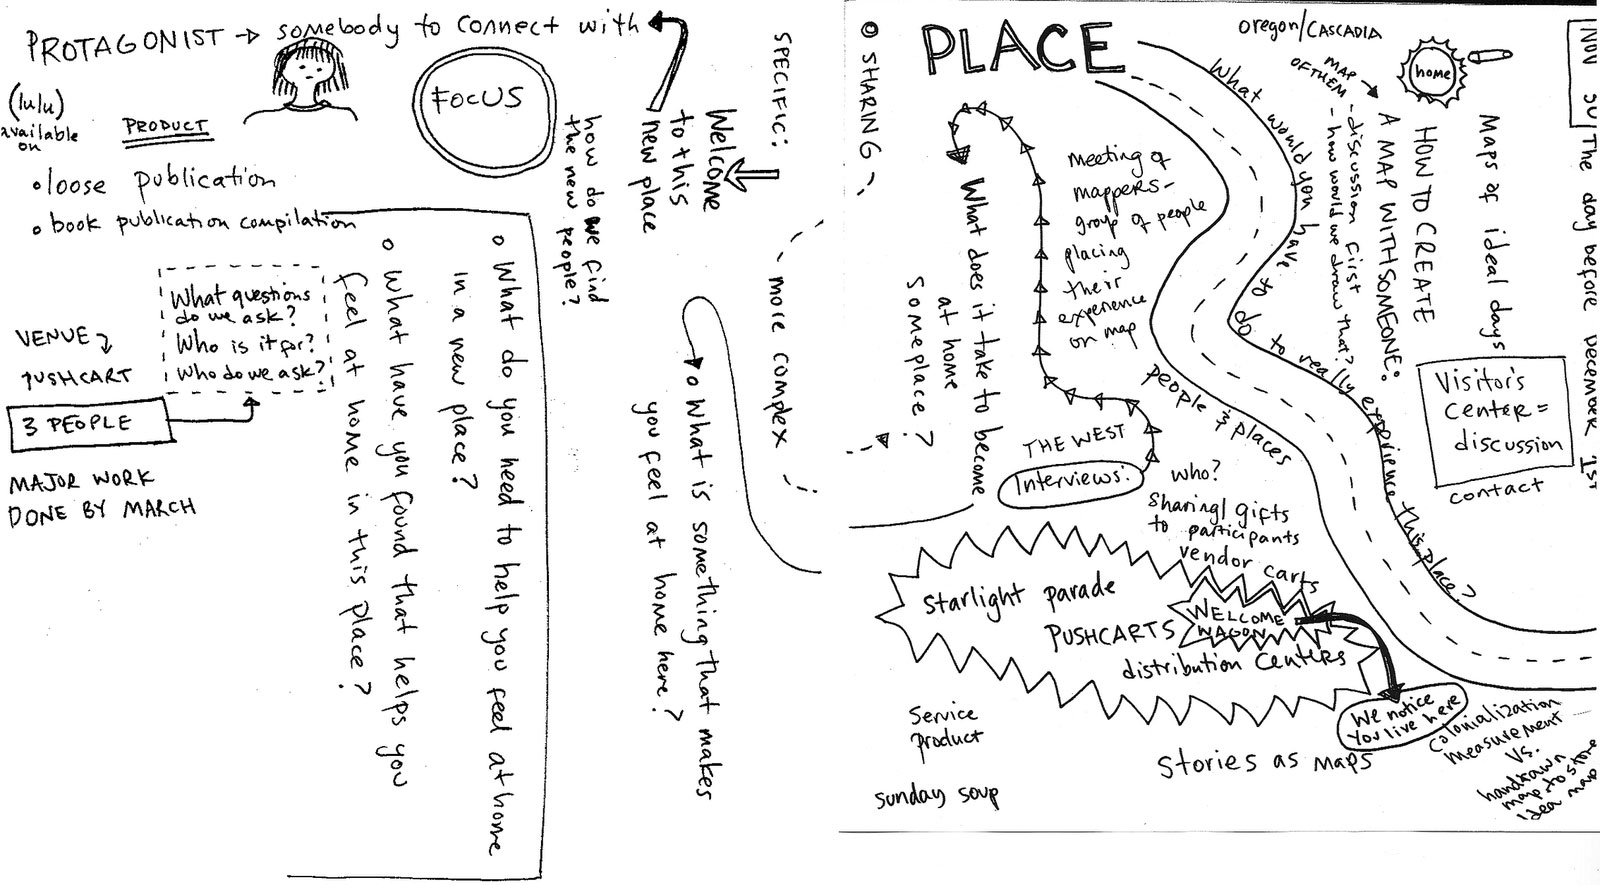 PROTAGONIST → somebody to connect with
(lulu)
available
on
PRODUCT
• loose publication
• book publication compilation
FOCUS
What questions
do we ask?
Who is it for?
Who do we ask?
VENUE
PUSHCART
3 PEOPLE
MAJOR WORK
DONE BY MARCH
• What do you need to help you feel at home
in a new place?
• What have you found that helps you
feel at home in this place?
how do we find
the new people?
SPECIFIC:
Welcome
to this
new place
more complex
• What is something that makes
you feel at home here?
• SHARING
PLACE
Oregon/CASCADIA
home
MAP
OF THEM
What would you have to do to really experience this place?
people & places
Meeting of
mappers-
group of people
placing
their
experience
on map
What does it take to become
at home
someplace?
THE WEST
Interviews:
who?
Sharing/gifts
to participants
vendor carts
Starlight parade
PUSHCARTS
WELCOME
WAGON
distribution centers
We notice
you live here
Service
product
Sunday soup
Stories as maps
Colonialization
measurement
Vs.
handrawn
map to store
idea map
NOV 30 / The day before DECEMBER 1ST
Maps of ideal days
HOW TO CREATE
A MAP WITH SOMEONE:
- discussion first
- how would we draw that?
Visitor's
Center =
discussion
contact